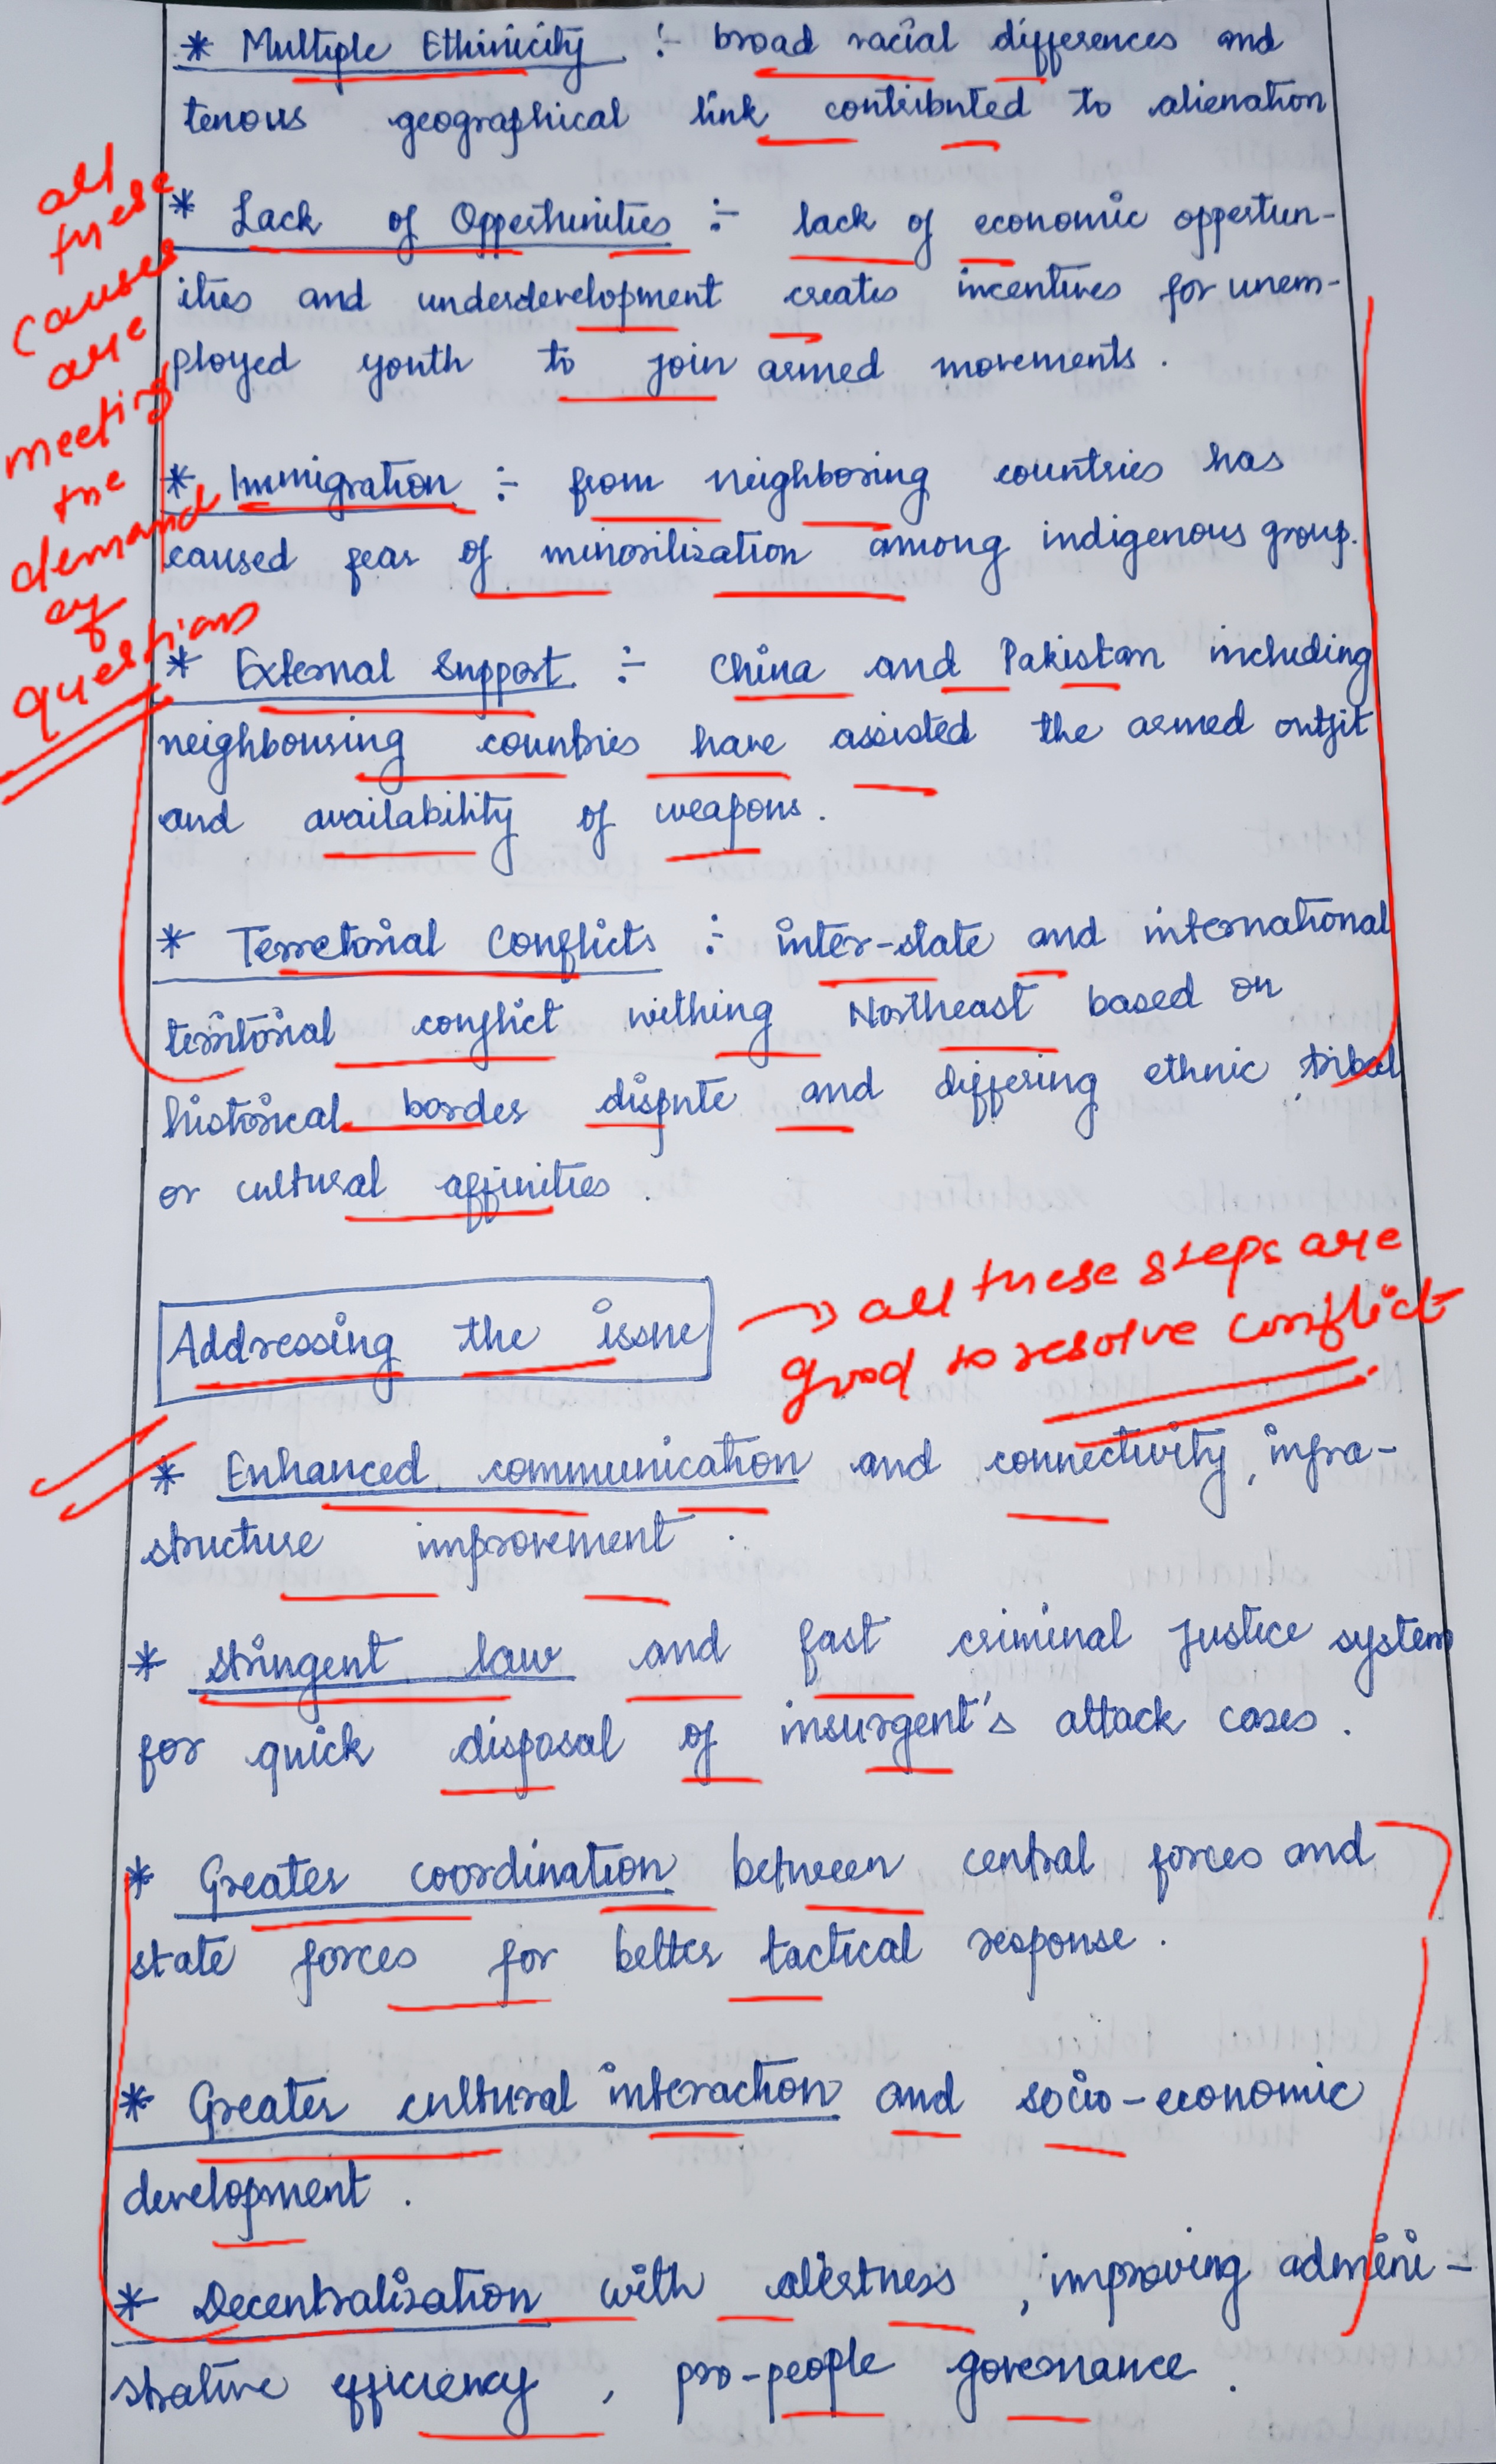 * Multiple Ethinicity :- broad racial differences and
tenous geographical link contributed to alienation
* Lack of Oppertunities :- lack of economic oppertun-
ities and underdevelopment creates incentives for unem-
ployed youth to join armed movements.
* Immigration :- from neighboring countries has
caused fear of minorilization among indigenous group.
* External Support :- China and Pakistan including
neighbouring countries have assisted the armed outfit
and availability of weapons.
* Terretorial Conflicts :- inter-state and international
territorial conflict withing Northeast based on
historical border dispute and differing ethnic, tribal
or cultural affinities.
all
these
causes
are
meeting
the
demand
of
questions
Addressing the issue
→ all these steps are
good to resolve conflict.
* Enhanced communication and connectivity, infra-
structure improvement.
* Stringent law and fast criminal justice system
for quick disposal of insurgent's attack cases.
* Greater coordination between central forces and
state forces for better tactical response.
* Greater cultural interaction and socio-economic
development.
* Decentralisation with alertness, improving admini-
strative efficiency, pro-people governance.